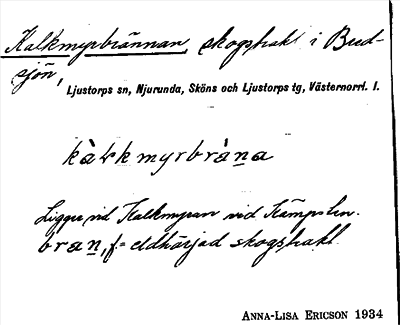 Kalkmyrbrännan, skogstrakt i Bud-
sjön,
Ljustorps sn, Njurunda, Sköns och Ljustorps tg, Västernorrl. l.
kàḷkmyrbràṉa
Ligger vid Kalkmyran vid
braṉ, f = eldhärjad skogstrakt.
ANNA-LISA ERICSON 1934